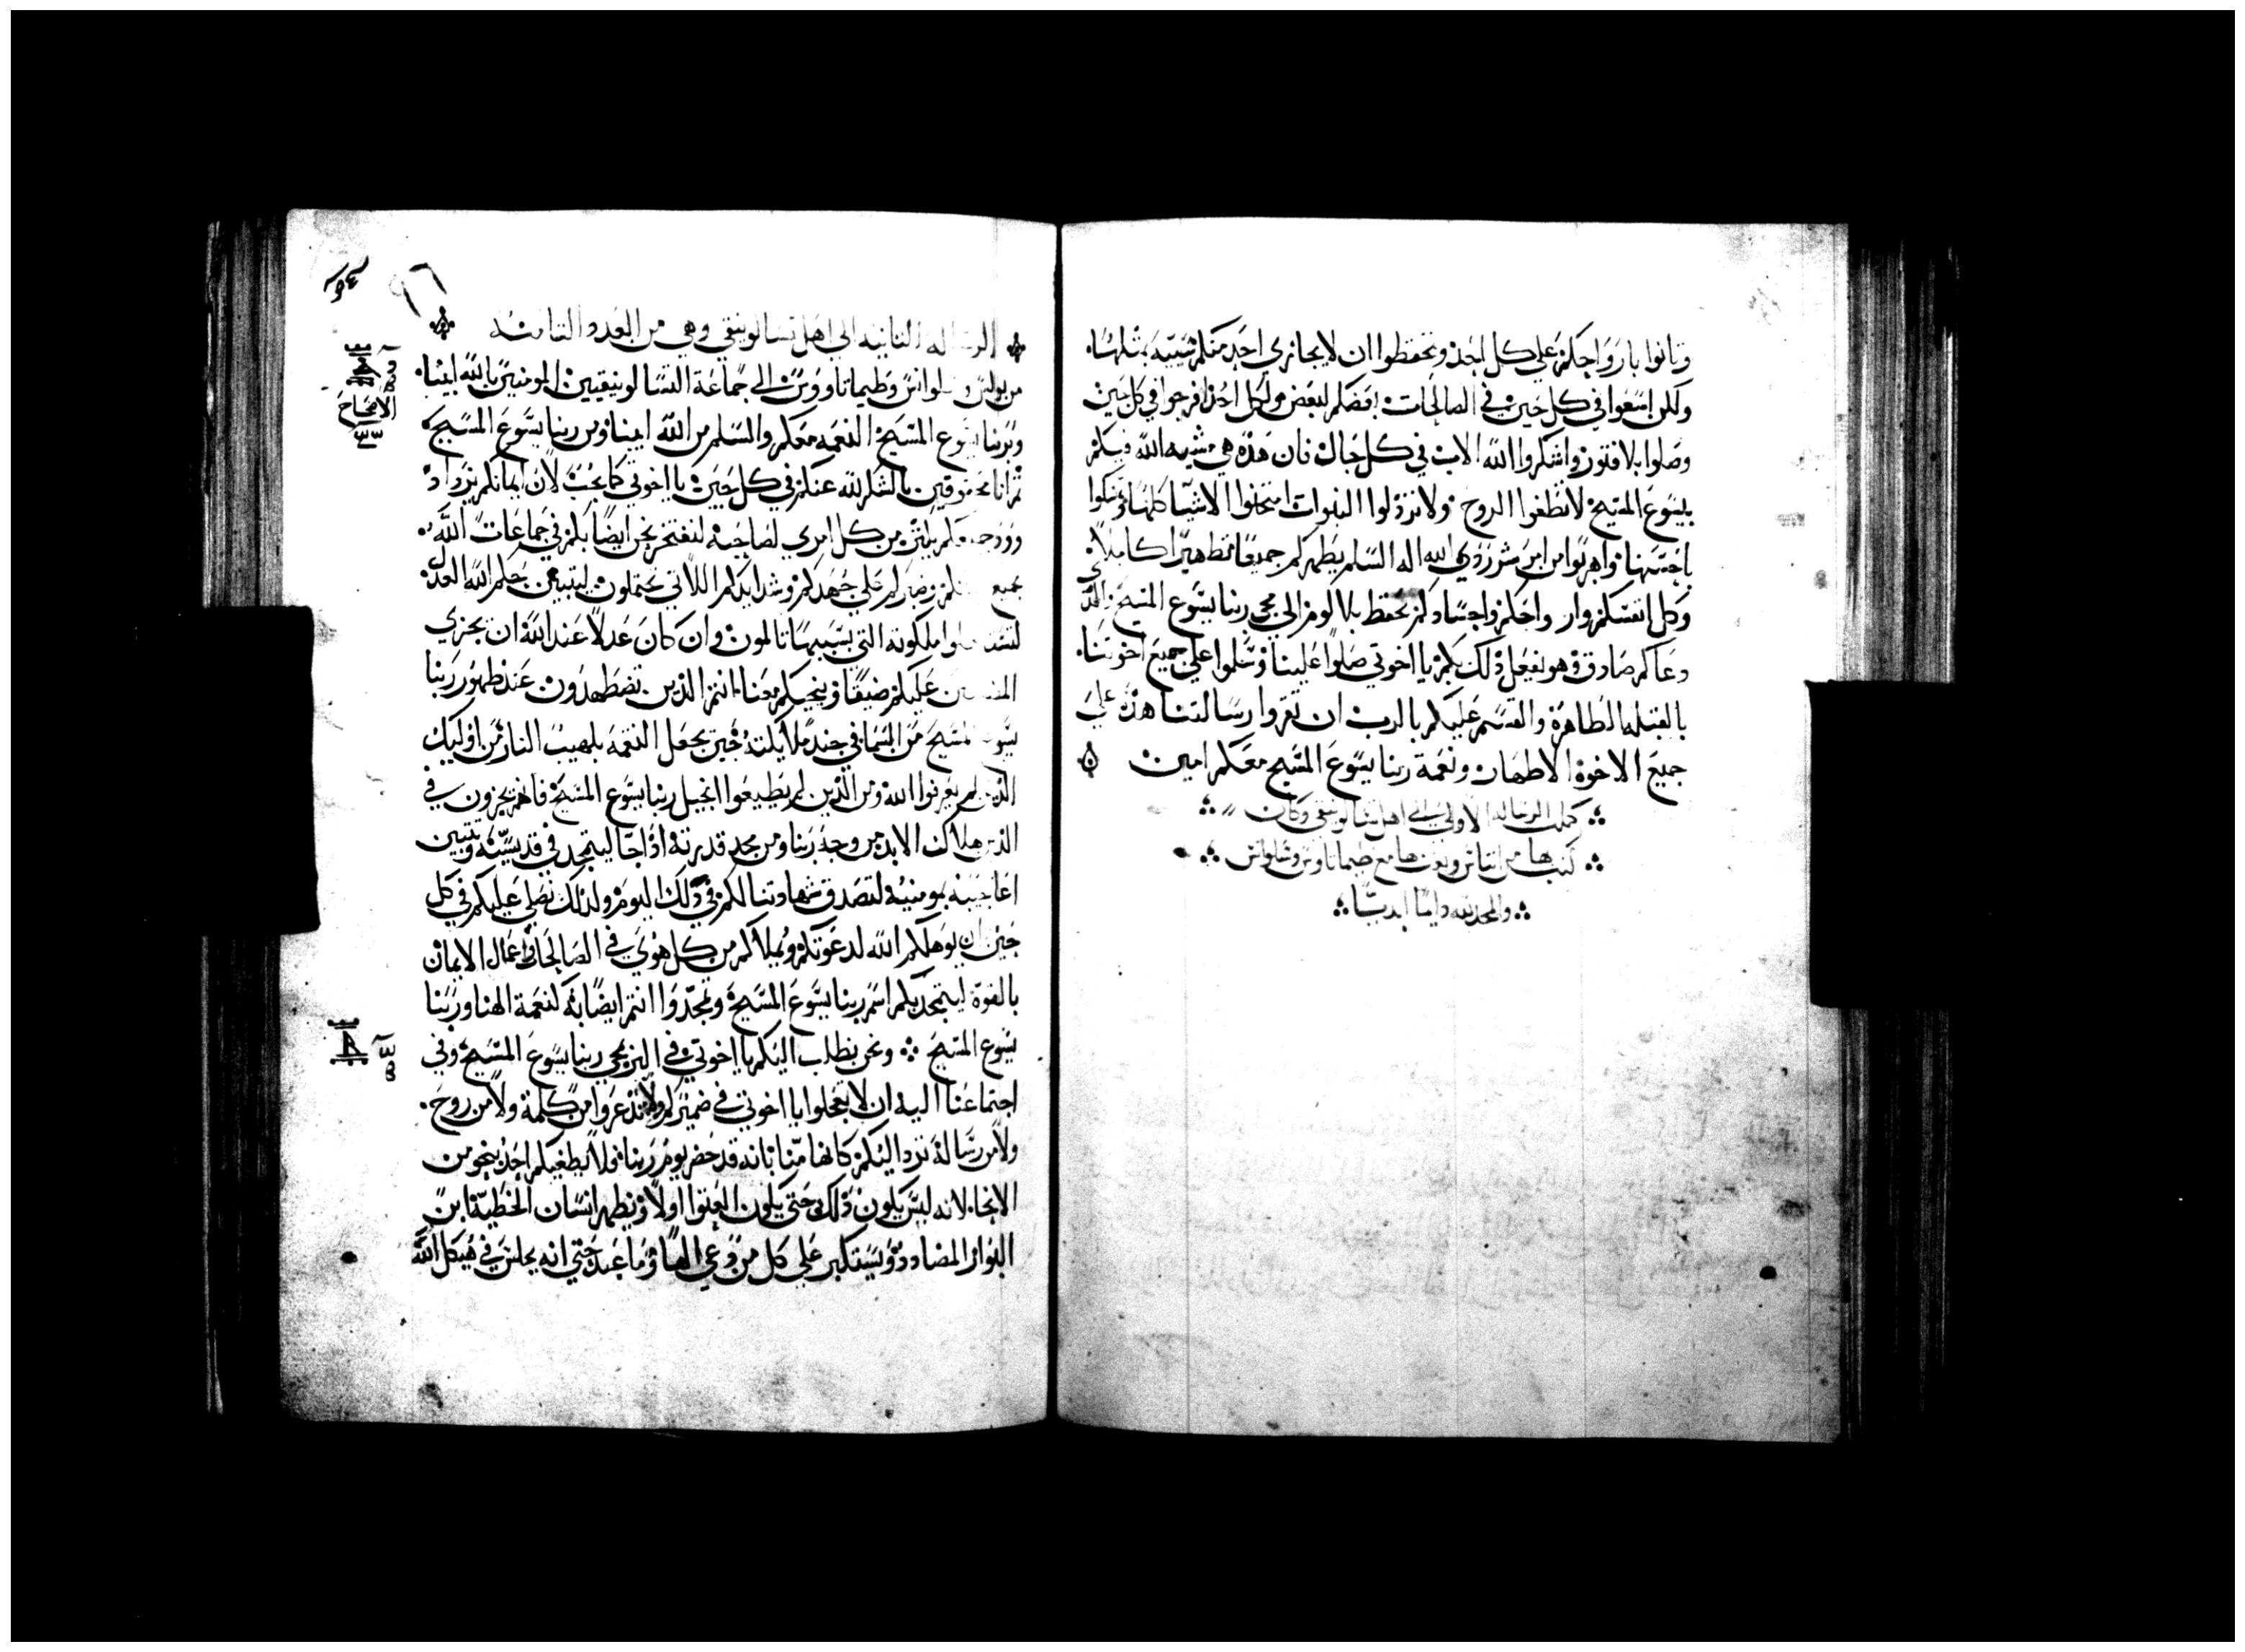 وتانوا بارواحكم علي كل احد وتحفظوا ان لا يجازي احد منكم سيية بمثلها
ولكن اسعوا في كل حين في الصالحات بعضكم لبعض ولكل احد افرحوا في كل حين
وصلوا بلا فتور واشكروا الله الاب في كل حال فان هذه هي مشية الله فيكم
بيسوع المسيح لا تطفوا الروح ولا ترذلوا النبوات امتحنوا الاشيا كلها وتمسكوا
باحسنها واهربوا من كل شر ردي الله اله السلم يطهركم جميعا تطهيرا كاملا
وكل انفسكم وارواحكم واجسادكم تحفظ بلا لوم الي مجي ربنا يسوع المسيح والذي
دعاكم صادق وهو يفعل ذلك بكم يا اخوتي صلوا علينا وسلموا علي جميع اخوتنا
بالقبله الطاهرة واقسم عليكم بالرب ان تقروا رسالتنا هذه علي
جميع الاخوة الاطهار ونعمة ربنا يسوع المسيح معكم امين
كملت الرساله الاولي الي اهل تسالونيقي وكان
كتب بها من اتناس وبعث بها مع طيماتاوس وسلوانس
والمجد لله دايما ابديا
الرساله الثانيه الي اهل تسالونيقي وهي من العدد الثامنه
من بولس وسلوانس وطيماتاووس الي جماعة التسالونيقيين المومنين بالله ابينا
وبربنا يسوع المسيح النعمه معكم والسلم من الله ابينا ومن ربنا يسوع المسيح
ثم انا محقوقين بالشكر لله عنكم في كل حين يا اخوتي كما يجب لان ايمانكم يزداد
وودكم يكثر من كل امري لصاحبه لنفتخر نحن ايضا بكم في جماعات الله
بجميع وصبركم علي جهدكم وشدايدكم اللاتي تحتملون ليتبين حكم الله العدل
ملكوته التي بسببها تالمون وان كان عدلا عند الله ان يجزي
عليكم ضيقا وينجيكم معنا انتم الذين تضطهدون عند ظهور ربنا
يسوع المسيح من السما في جند ملايكته حين يجعل النقمة بلهيب النار من اوليك
الذين لم يعرفوا الله ومن الذين لم يطيعوا انجيل ربنا يسوع المسيح فانهم يجزون في
الدين هلاك الابد من وجه ربنا ومن مجد قدرته اذا جا ليتمجد في قديسيه وتتبين
اعاجيبه بمومنيه لتصدق شهادتنا لكم في ذلك اليوم ولذلك نصلي عليكم في كل
حين ان يوهلكم الله لدعوتكم ويملاكم من كل هوي في الصالحات واعمال الايمان
بالقوة ليتمجد بكم اسم ربنا يسوع المسيح وتمجدوا انتم ايضا به كنعمة الهنا وربنا
يسوع المسيح ونحن نطلب اليكم يا اخوتي في مجي ربنا يسوع المسيح وفي
اجتماعنا اليه ان لا تعجلوا يا اخوتي في ضميركم ولا تذعروا من كلمة ولا من روح
ولا من رسالة ترد اليكم كانها منا بانه قد حضر يوم ربنا ولا يطغيكم احد بنحو من
الانحا لانه ليس يكون ذلك حتي يكون العتوا اولا ويظهر انسان الخطية ابن
البوار المضادد ويستكبر علي كل من دعي الها وما عبد حتي انه يجلس في هيكل الله
الاصحاح